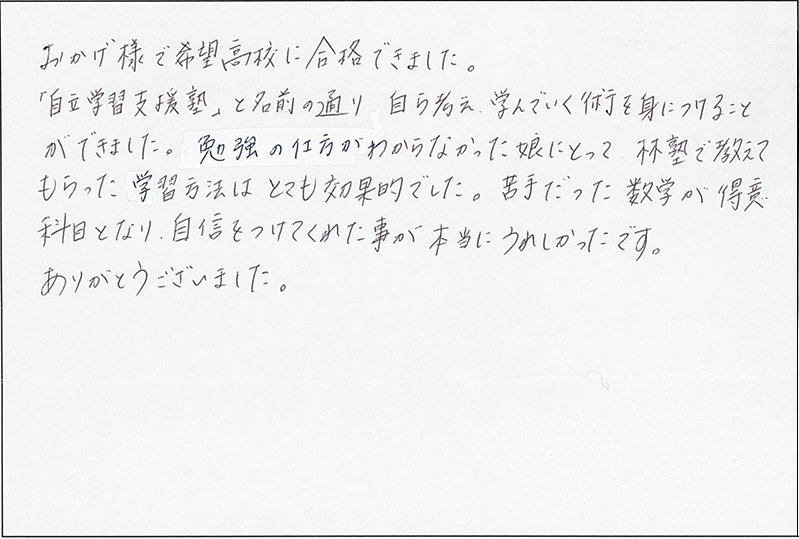 おかげ様で希望高校に合格できました。
「自立学習支援塾」と名前の通り 自ら考え、学んでいく術を身につけること
ができました。勉強の仕方がわからなかった娘にとって 林塾で教えて
もらった学習方法は とても効果的でした。苦手だった数学が得意
科目となり、自信をつけてくれた事が本当にうれしかったです。
ありがとうございました。